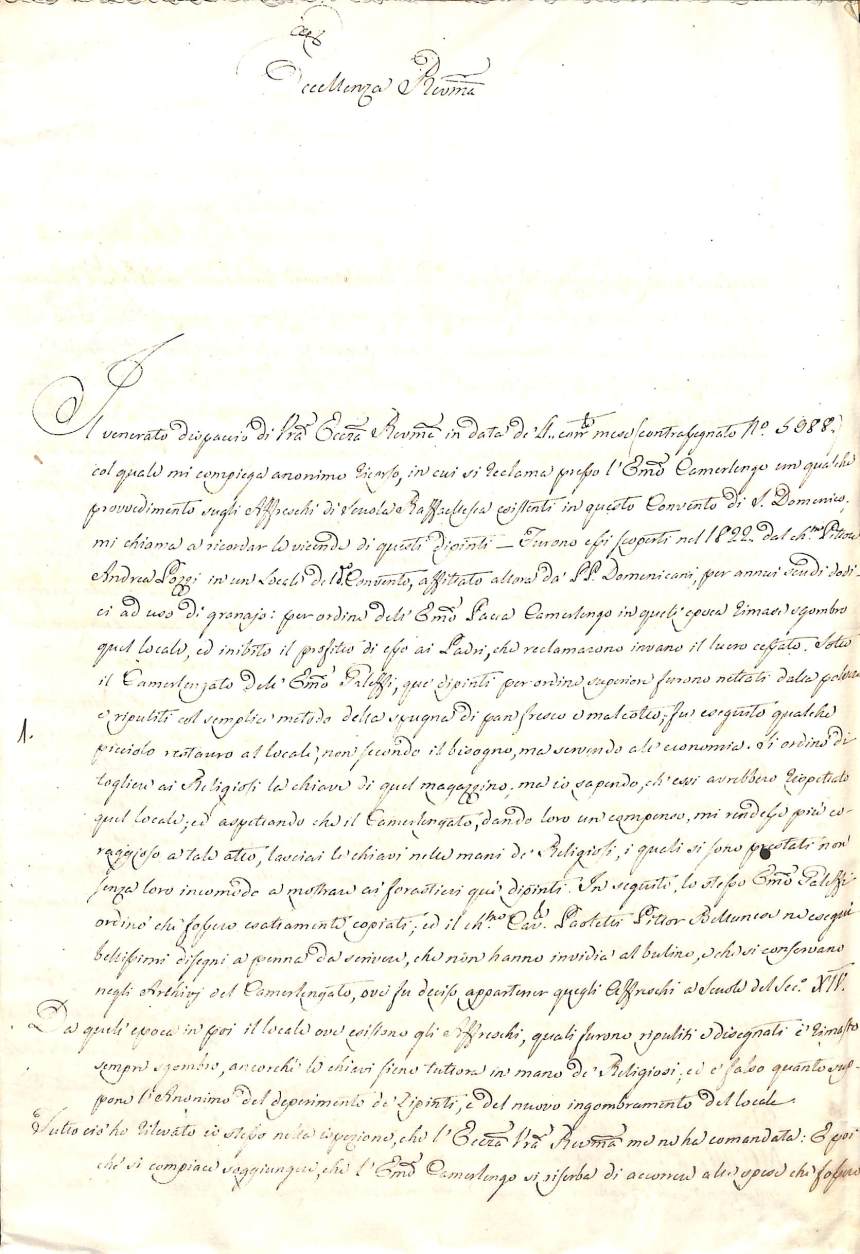 Eccellenza Revma
Il venerato dispaccio di Vra Eccza Revma in data de' 4. corr. mese (contrasegnato No. 5988.)
col quale mi compiega anonimo ricorso, in cui si reclama presso l'Emo Camerlengo un qualche
provvedimento sugli Affreschi di Scuola Raffaellesca esistenti in questo Convento di S. Domenico,
mi chiama a ricordar le vicende di questi dipinti — Furono essi scoperti nel 1822. dal ch.mo Pittore
Andrea Pozzi in un locale del Convento, affittato allora da' PP. Domenicani, per annui scudi dodi-
ci ad uso di granajo: per ordine dell'Emo Pacca Camerlengo in quell'epoca rimase sgombro
quel locale, ed inibito il profitto di esso ai Padri, che reclamarono invano il lucro cessato. Sotto
il Camerlengato dell'Emo Galeffi, que' dipinti per ordine superiore furono nettati dalla polvere
e ripuliti col semplice metodo della spugna di pan fresco e mal cotto; fu eseguito qualche
1.
picciolo restauro al locale, non secondo il bisogno, ma servendo all'economia. Si ordinò di
togliere ai Religiosi le chiavi di quel magazzino; ma io sapendo, ch'essi avrebbero ripetuto
quel locale, ed aspettando che il Camerlengato, dando loro un compenso, mi rendesse più co-
raggioso a tale atto, lasciai le chiavi nelle mani de' Religiosi, i quali si sono prestati non
senza loro incomodo a mostrare ai forastieri que' dipinti. In seguito, lo stesso Emo Galeffi
ordinò che fossero esattamente copiati; ed il ch.mo Cav. Paoletti Pittor Bellunese ne eseguì
bellissimi disegni a penna da scrivere, che non hanno invidia al bulino, e che si conservano
negli Archivj del Camerlengato, ove fu deciso appartener quegli Affreschi a Scuole del Sec.o XIV.
Da quell'epoca in poi il locale ove esistono gli Affreschi, quali furono ripuliti e disegnati è rimasto
sempre sgombro, ancorchè le chiavi sieno tuttora in mano de' Religiosi; ed è falso quanto sup-
pone l'Anonimo del deperimento de' Dipinti, e del nuovo ingombramento del locale.
Tutto ciò ho rilevato io stesso nella ispezione, che l'Eccza Vra Revma me ne ha comandata: E poi
chè si compiace soggiungere, che l'Emo Camerlengo si riserba di accorrere alle spese che fossero